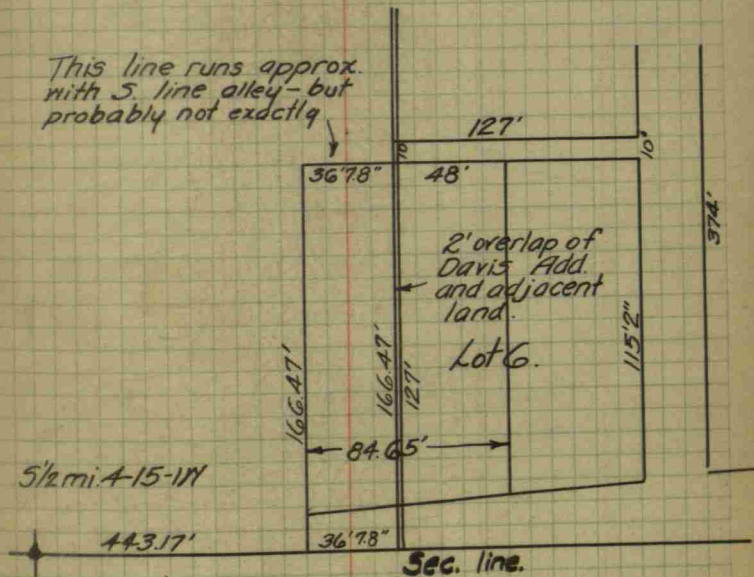 This line runs approx.
with S. line alley - but
probably not exactly
127'
10'
10'
36'7.8"
48'
374'
2' overlap of
Davis Add.
and adjacent
land.
Lot 6.
115'2"
166.47'
166.47'
127'
84.65'
S1/2 mi. 4-15-1W
443.17'
36'7.8"
Sec. line.